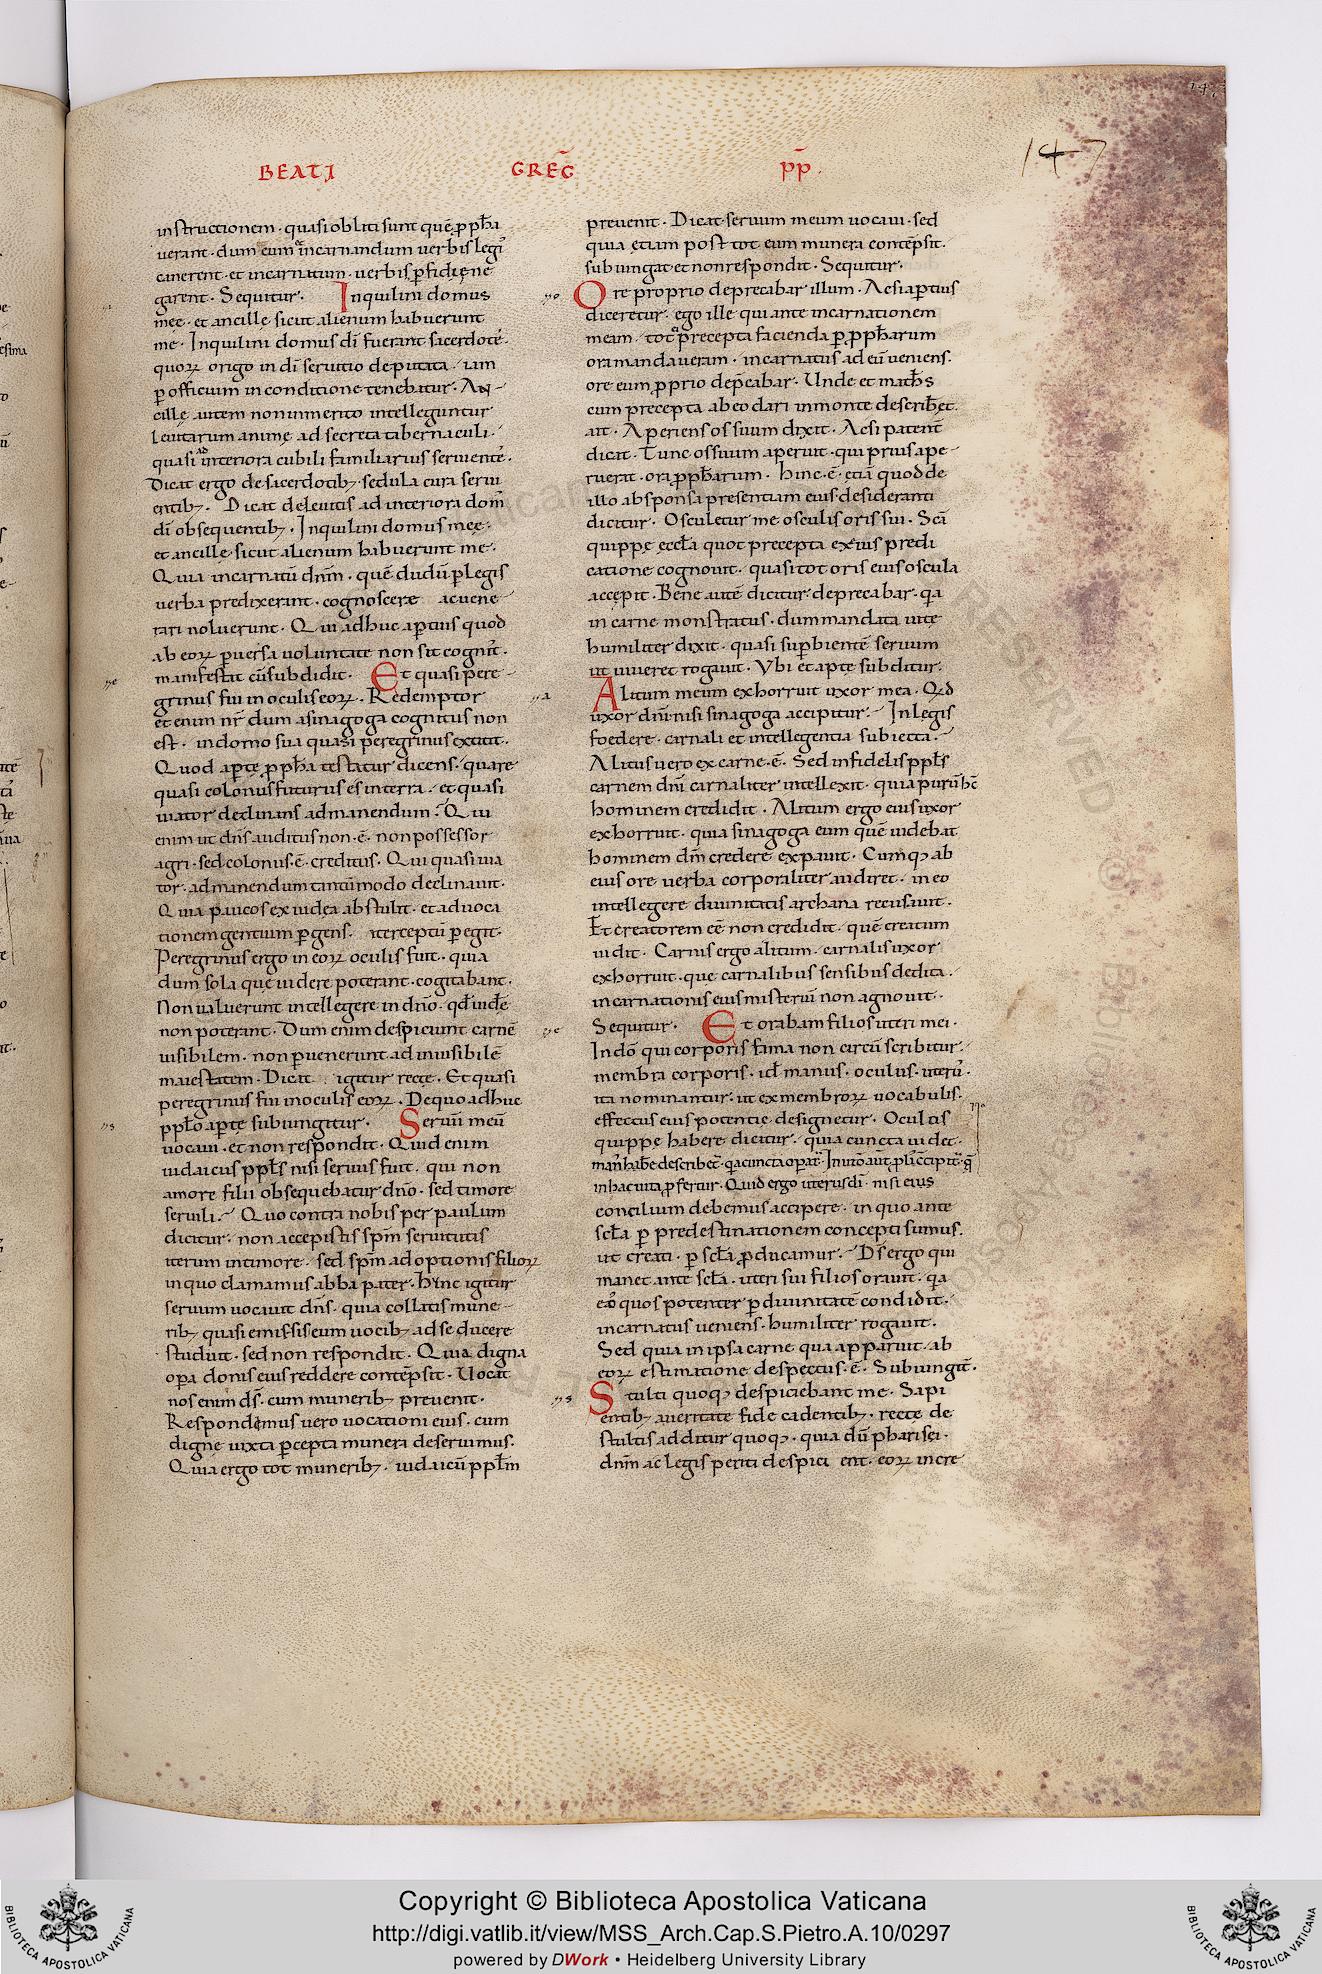 BEATI GREḠ P̄P.
147
instructionem · quasi obliti sunt quē ꝓpħa
uerant · dum eum incarnandum uerbis legiſ
canerent · et incarnatum · uerbis ꝑfidię ne
garent · Sequitur · Inquilini domus
meę · et ancille sicut alienum habuerunt
me · Inquilini domus dī fuerant sacerdotes̄
quoꝝ origo in dī seruitio deputata · iam
ꝑ officium in conditione tenebatur · An
cillę autem non inmerito intelleguntur
leuitarum animę ad secreta tabernaculi ·
quasi ad interiora cubili familiarius seruientes̄ ·
Dicat ergo de sacerdotibꝫ · sedula cura serui
entibꝫ · Dicat de leuitis ad interiora domus̄
dī obsequentibꝫ · Inquilini domus meę
et ancille · sicut alienum habuerunt me ·
Quia incarnatū dn̄m · quē dudū ꝑ legis
uerba predixerant · cognoscere ac uene
rari noluerunt · Qui adhuc aꝑtius quod
ab eoꝝ ꝑuersa uoluntate non sit cognit᷒ ·
manifestat cū subdidit · Et quasi pere
grinus fui in oculis eoꝝ · Redemptor
et enim nr̄ dum a sinagoga cognitus non
est · in domo sua quasi peregrinus extitit ·
Quod aꝑte ꝓpħa testatur dicens · quare
quasi colonus futurus es in terra · et quasi
uiator declinans ad manendum · Qui
enim ut dn̄s auditus non · ē · non possessor
agri · sed colonus · ē · creditus · Qui quasi uia
tor · ad manendum tantūmodo declinauit ·
Quia paucos ex iudea abstulit · et ad uoca
tionem gentium ꝑgens · iter ceptū ꝑegit ·
Peregrinus ergo in eoꝝ oculis fuit · quia
dum sola quę uidere poterant · cogitabant ·
Non ualuerunt intellegere in dn̄o · qd̄ uidēe
non poterant · Dum enim despiciunt carnē
uisibilem · non ꝑuenerunt ad inuisibilē
maiestatem · Dicat igitur recte · Et quasi
peregrinus fui in oculis eoꝝ · De quo adhuc
ppłō aꝑte subiungitur · Seruū meū
uocaui · et non respondit · Quid enim
iudaicus ppłs nisi seruus fuit · qui non
amore filii obsequebatur dn̄o · sed timore
seruili · Quo contra nobis per paulum
dicitur · non accepistis sp̄m seruitutis
iterum in timore · sed sp̄m adoptionis filioꝝ
in quo clamamus abba pater · Hinc igitur
seruum uocauit dn̄s · quia collatis mune
ribꝫ quasi emissis eum uocibꝫ ad se ducere
studuit · sed non respondit · Quia digna
oꝑa donis eius reddere contēpsit · Uocat
nos enim ds̄ · cum muneribꝫ preuenit ·
Respondemus uero uocationi eius · cum
digne iuxta ꝑcepta munera deseruimus ·
Quia ergo tot muneribꝫ · iudaicū ppłm
preuenit · Dicat seruum meum uocaui · sed
quia etiam post tot eum munera contēpsit ·
subiungat · et non respondit · Sequitur ·
Ore proprio deprecabar illum · Ac si aꝑtius
diceretur · ego ille qui ante incarnationem
meam · tot precepta facienda ꝑ ꝓpħarum
ora mandaueram · incarnatus ad eū ueniens ·
ore eum ꝓprio dep̄cabar · Unde et math̄s
cum precepta ab eo dari in monte describ̄et ·
ait · Aperiens os suum dixit · Ac si patent᷒
dicat · Tunc os suum aperuit · qui prius ape
ruerat · ora ꝓpħarum · Hinc · ē · etiā quod de
illo ab sponsa presentiam eius desideranti
dicitur · Osculetur me osculis oris sui · Scā
quippe ecclā quot precepta ex eius predi
catione cognouit · quasi tot oris eius oscula
accepit · Bene autē dicitur · deprecabar · qa
in carne monstratus · dum mandata uite
humiliter dixit · quasi suꝑbientē seruum
ut uiueret rogauit · Ubi et apte subditur ·
Alitum meum exhorruit uxor mea · Qd
uxor dn̄i nisi sinagoga accipitur · In legis
foedere · carnali ei intellegentia subiecta ·
Alitus uero ex carne · ē · Sed infidelis ppłs
carnem dn̄i carnaliter intellexit · quia purū hc̄
hominem credidit · Alitum ergo eius uxor
exhorruit · quia sinagoga eum quē uidebat
hominem dm̄ credere expauit · Cumqꝫ ab
eius ore uerba corporaliter audiret · in eo
intellegere diuinitatis archana recusauit ·
Et creatorem eē non credidit · quē creatum
uidit · Carnis ergo alitum · carnalis uxor
exhorruit · que carnalibus sensibus dedita ·
incarnationis eius misteriū non agnouit ·
Sequitur · Et orabam filios uteri mei ·
In do᷒ qui corporis fama non circū scribitur ·
membra corporis · id manus · oculus · uterꝰ ·
ita nominantur · ut ex membroꝝ uocabulis ·
effectus eius potentie designetur · Oculus
quippe habere dicitur · quia cuncta uidet ·
in hac uita ꝓfertur · Quid ergo uterus dī · nisi eius
concilium debemus accipere · in quo ante
scła ꝑ predestinationem concepti sumus ·
ut creati · ꝑ scła ꝓducamur · Ds̄ ergo qui
manet ante scła · uteri sui filios orauit · qa
eos̄ quos potenter ꝑ diuinitatē condidit ·
incarnatus ueniens · humiliter rogauit ·
Sed quia in ipsa carne qua apparuit · ab
eoꝝ estimatione despectus · ē · Subiungit᷒ ·
Stulti quoqꝫ despiciebant me · Sapi
entibꝫ a ueritate fide cadentibꝫ · recte de
stultis additur quoqꝫ · quia dū pharisei ·
dn̄m ac legis periti despici ent · eoꝝ incre
Copyright © Biblioteca Apostolica Vaticana
http://digi.vatlib.it/view/MSS_Arch.Cap.S.Pietro.A.10/0297
powered by DWork • Heidelberg University Library